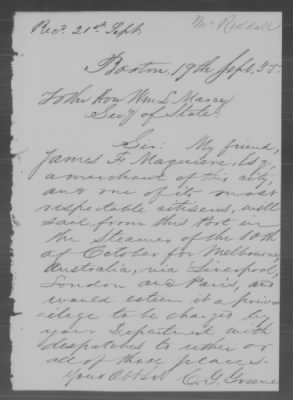 Mr Reddall
Rec? 21st Sept
Boston, 19th Sept. 55.
To the Hon. Wm L. Marcy
Secy of State.
Sir: My friend,
James F. Maguire, Esq,
a merchant of this city
and one of its most
respectable citizens, will
sail from this Port in
the Steamer of the 10th
of October for Melbourne
Australia, via Liverpool,
London and Paris, and
would esteem it a priv-
ilege to be charged by
your Department with
despatches to either or
all of those places.
Your Obt Svt
C. G. Greene